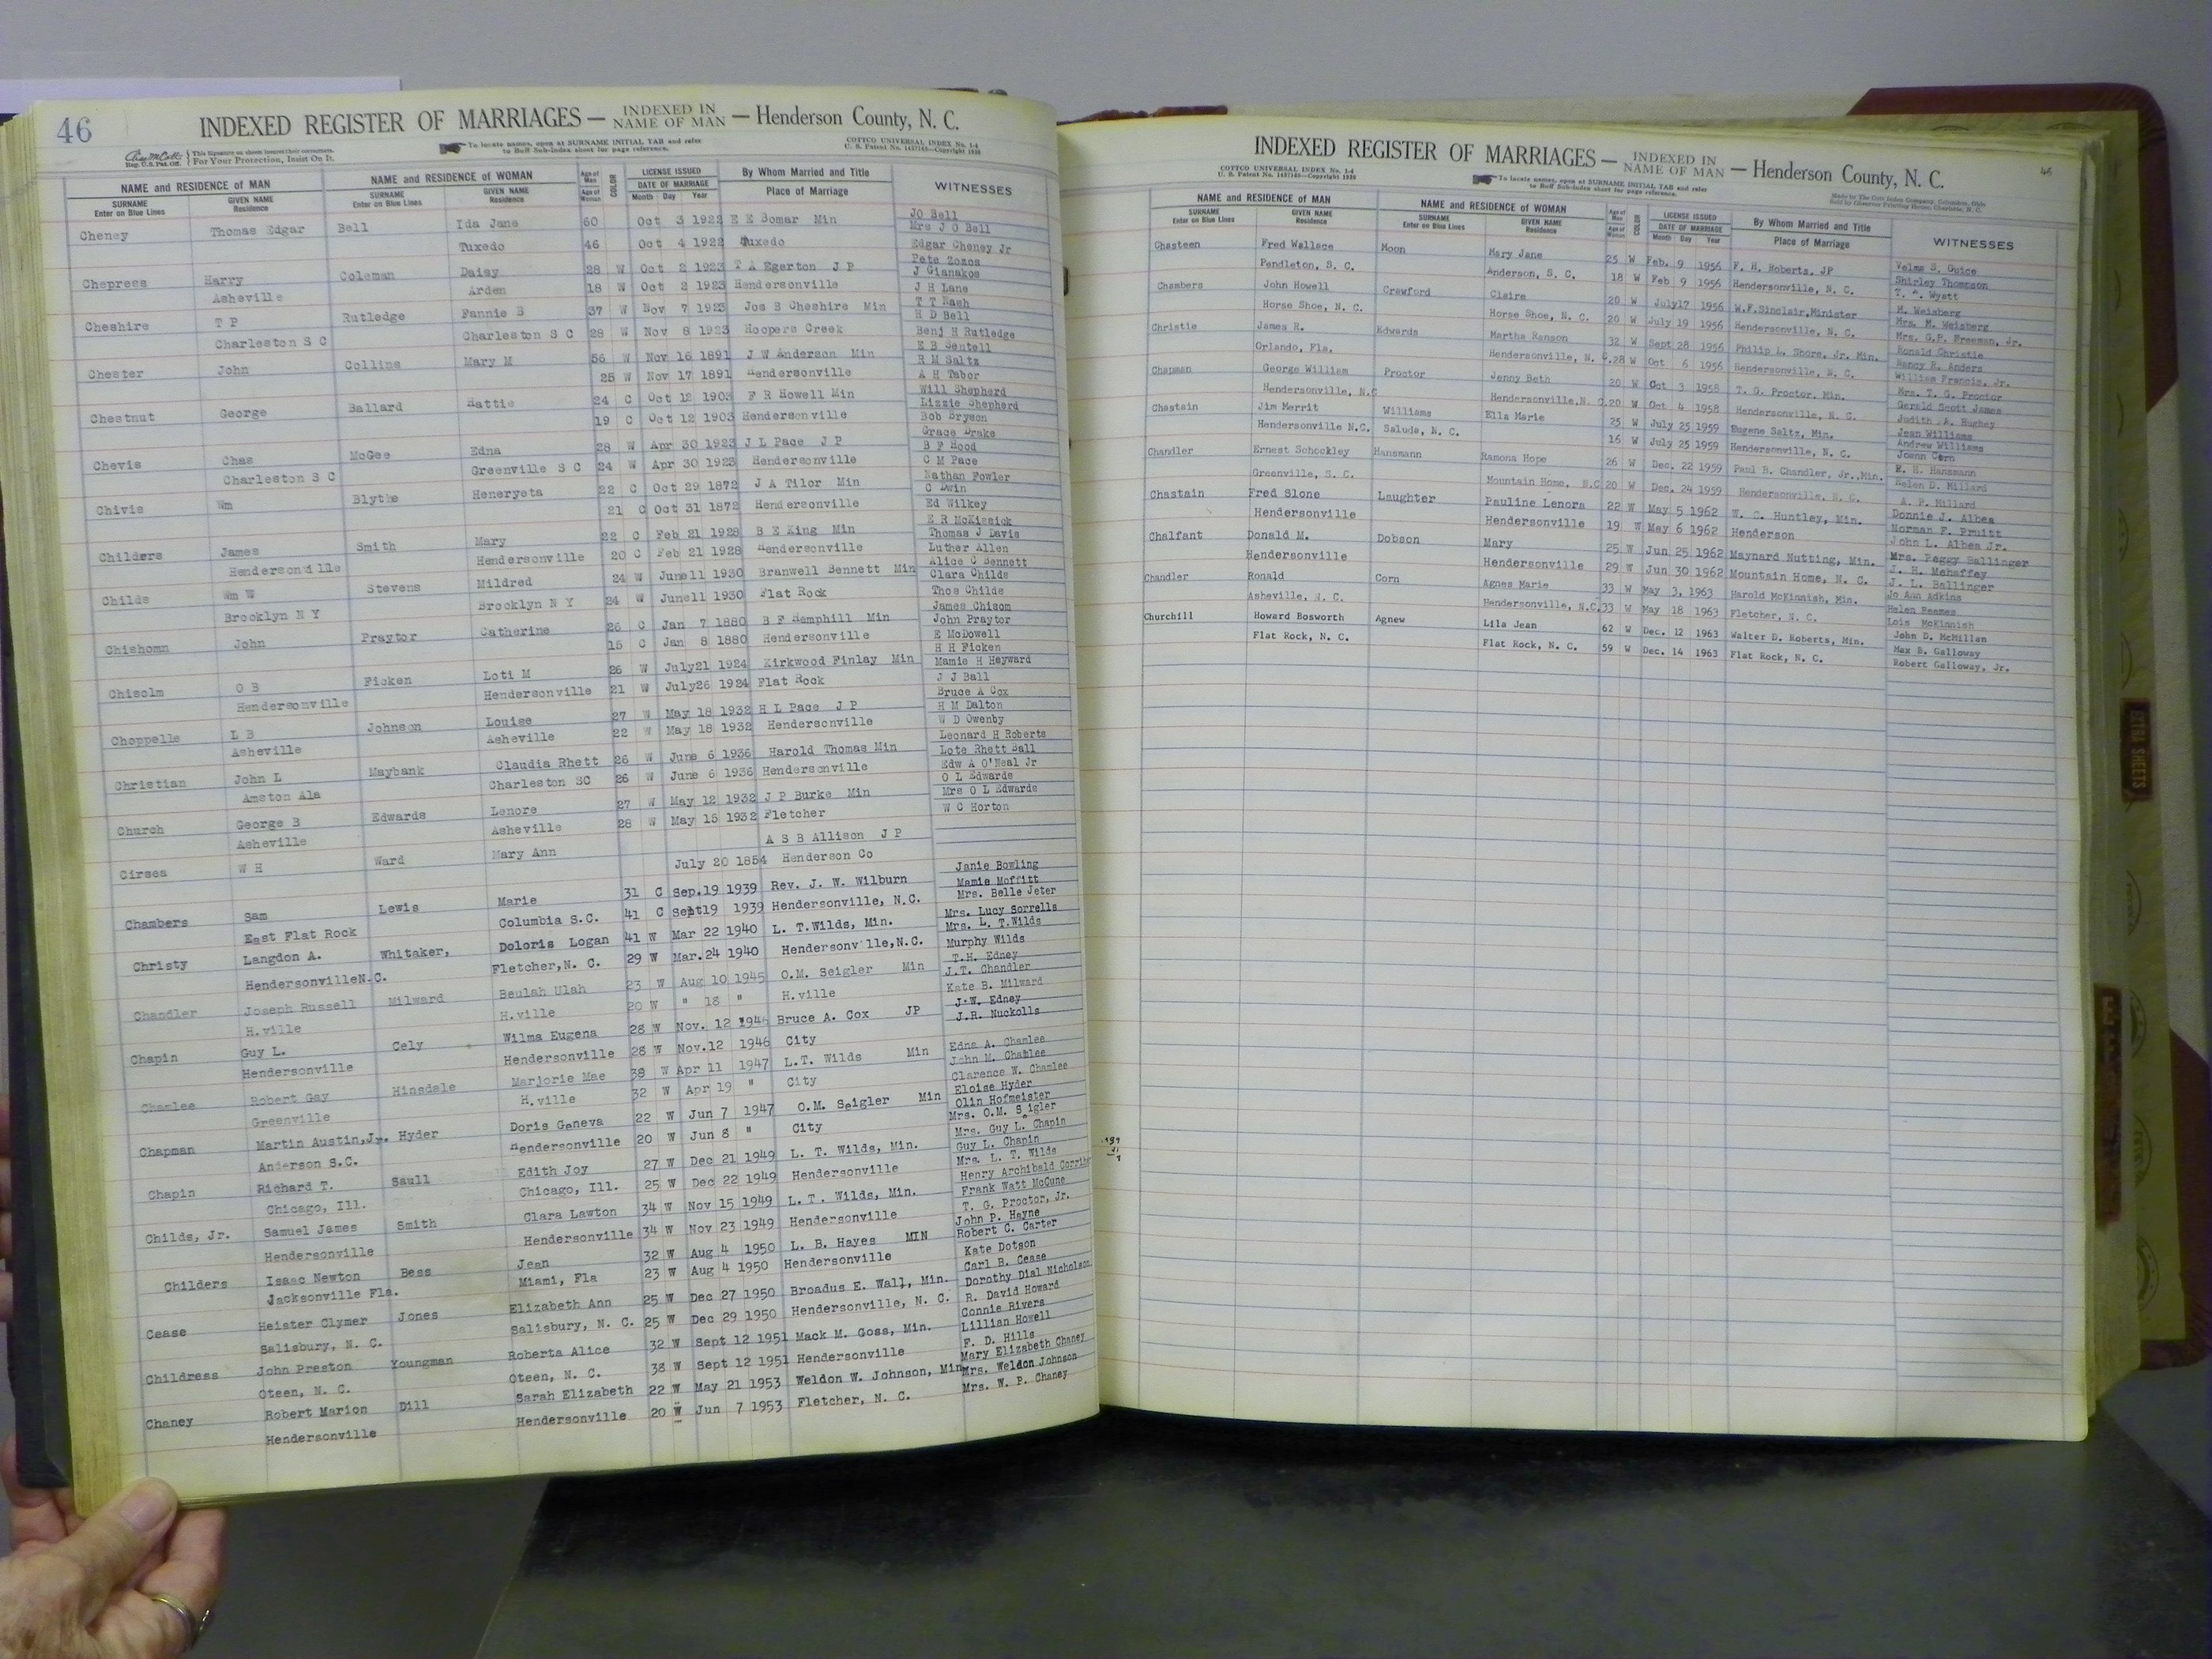 46
INDEXED REGISTER OF MARRIAGES — INDEXED IN NAME OF MAN — Henderson County, N. C.
Reg. U.S. Pat. Off. This Signature on sheets insures their correctness. For Your Protection, Insist On It.
To locate names, open at SURNAME INITIAL TAB and refer to Buff Sub-Index sheet for page reference.
COTTCO UNIVERSAL INDEX No. 1-4
U. S. Patent No. 1457163—Copyright 1920
NAME and RESIDENCE of MAN NAME and RESIDENCE of WOMAN Age of Man Age of Woman COLOR LICENSE ISSUED DATE OF MARRIAGE By Whom Married and Title Place of Marriage WITNESSES
SURNAME Enter on Blue Lines GIVEN NAME Residence SURNAME Enter on Blue Lines GIVEN NAME Residence Month Day Year
Cheney Thomas Edgar Bell Ida Jane 60 Oct 3 1922 E E Bomar Min JO Bell
Mrs J O Bell
Tuxedo 46 Oct 4 1922 Tuxedo Edgar Cheney Jr
Chepress Harry Coleman Daisy 28 W Oct 2 1923 T A Egerton J P Pete Zozos
J Gianakos
Asheville Arden 18 W Oct 2 1923 Hendersonville J H Lane
Cheshire T P Rutledge Fannie B 37 W Nov 7 1923 Jos B Cheshire Min T T Nash
H D Bell
Charleston S C Charleston S C 28 W Nov 8 1923 Hoopers Creek Benj H Rutledge
Chester John Collins Mary M 56 W Nov 16 1891 J W Anderson Min E B Sentell
R M Saltz
25 W Nov 17 1891 Hendersonville A H Tabor
Chestnut George Ballard Hattie 24 C Oct 12 1903 F R Howell Min Will Shepherd
Lizzie Shepherd
19 C Oct 12 1903 Hendersonville Bob Bryson
Chevis Chas McGee Edna 28 W Apr 30 1923 J L Pace J P Grace Drake
B F Hood
Charleston S C Greenville S C 24 W Apr 30 1923 Hendersonville C M Pace
Chivis Wm Blythe Heneryeta 22 C Oct 29 1872 J A Tilor Min Nathan Fowler
C Dwin
21 C Oct 31 1872 Hendersonville Ed Wilkey
Childers James Smith Mary 22 C Feb 21 1928 B E King Min E R McKissick
Thomas J Davis
Hendersonville Hendersonville 20 C Feb 21 1928 Hendersonville Luther Allen
Childs Wm W Stevens Mildred 24 W June11 1930 Branwell Bennett Min Alice C Bennett
Clara Childs
Brooklyn N Y Brooklyn N Y 24 W June11 1930 Flat Rock Thos Childs
Chishomn John Praytor Catherine 26 C Jan 7 1880 B F Hemphill Min James Chisom
John Praytor
15 C Jan 8 1880 Hendersonville E McDowell
Chisolm O B Ficken Loti M 26 W July21 1924 Kirkwood Finlay Min H H Ficken
Mamie H Heyward
Hendersonville Hendersonville 21 W July26 1924 Flat Rock J J Ball
Choppelle L B Johnson Louise 27 W May 18 1932 H L Pace J P Bruce A Cox
H M Dalton
Asheville Asheville 22 W May 18 1932 Hendersonville W D Owenby
Christian John L Maybank Claudia Rhett 26 W June 6 1936 Harold Thomas Min Leonard H Roberts
Lote Rhett Ball
Amston Ala Charleston SC 26 W June 6 1936 Hendersonville Edw A O'Neal Jr
Church George B Edwards Lenore 27 W May 12 1932 J P Burke Min O L Edwards
Mrs O L Edwards
Asheville Asheville 28 W May 15 1932 Fletcher W C Horton
Cirsea W H Ward Mary Ann A S B Allison J P
July 20 1854 Henderson Co
Chambers Sam Lewis Marie 31 C Sep.19 1939 Rev. J. W. Wilburn Janie Bowling
Mamie Moffitt
East Flat Rock Columbia S.C. 41 C Sept19 1939 Hendersonville, N.C. Mrs. Belle Jeter
Christy Langdon A. Whitaker, Doloris Logan 41 W Mar 22 1940 L. T.Wilds, Min. Mrs. Lucy Sorrells
Mrs. L. T.Wilds
HendersonvilleN.C. Fletcher,N. C. 29 W Mar.24 1940 Hendersonv'lle,N.C. Murphy Wilds
Chandler Joseph Russell Milward Beulah Ulah 23 W Aug 10 1945 O.M. Seigler Min T.H. Edney
J.T. Chandler
H.ville H.ville 20 W " 18 " H.ville Kate B. Milward
Chapin Guy L. Cely Wilma Eugena 28 W Nov. 12 1946 Bruce A. Cox JP J.W. Edney
J.R. Nuckolls
Hendersonville Hendersonville 28 W Nov.12 1946 City
Chamlee Robert Gay Hinsdale Marjorie Mae 38 W Apr 11 1947 L.T. Wilds Min Edna A. Chamlee
John M. Chamlee
Greenville H.ville 32 W Apr 19 " City Clarence W. Chamlee
Chapman Martin Austin,Jr. Hyder Doris Geneva 22 W Jun 7 1947 O.M. Seigler Min Eloise Hyder
Olin Hofmeister
Anderson S.C. Hendersonville 20 W Jun 8 " City Mrs. O.M. Seigler
Chapin Richard T. Saull Edith Joy 27 W Dec 21 1949 L. T. Wilds, Min. Mrs. Guy L. Chapin
Guy L. Chapin
Chicago, Ill. Chicago, Ill. 25 W Dec 22 1949 Hendersonville Mrs. L. T. Wilds
Childs, Jr. Samuel James Smith Clara Lawton 34 W Nov 15 1949 L. T. Wilds, Min. Henry Archibald
Frank Watt McCune
Hendersonville Hendersonville 34 W Nov 23 1949 Hendersonville T. G. Proctor, Jr.
Childers Isaac Newton Bess Jean 32 W Aug 4 1950 L. B. Hayes MIN John P. Hayne
Robert C. Carter
Jacksonville Fla. Miami, Fla 23 W Aug 4 1950 Hendersonville Kate Dotson
Cease Heister Clymer Jones Elizabeth Ann 25 W Dec 27 1950 Broadus E. Wall, Min. Carl B. Cease
Dorothy Dial Nicholson
Salisbury, N. C. Salisbury, N. C. 25 W Dec 29 1950 Hendersonville, N. C. R. David Howard
Childress John Preston Youngman Roberta Alice 32 W Sept 12 1951 Mack M. Goss, Min. Connie Rivers
Lillian Howell
Oteen, N. C. Oteen, N. C. 38 W Sept 12 1951 Hendersonville F. D. Hills
Chaney Robert Marion Dill Sarah Elizabeth 22 W May 21 1953 Weldon W. Johnson, Min Mary Elizabeth Chaney
Mrs. Weldon Johnson
Hendersonville Hendersonville 20 W Jun 7 1953 Fletcher, N. C. Mrs. W. P. Chaney
INDEXED REGISTER OF MARRIAGES — INDEXED IN NAME OF MAN — Henderson County, N. C.
46
COTTCO UNIVERSAL INDEX No. 1-4
U. S. Patent No. 1457163—Copyright 1920
To locate names, open at SURNAME INITIAL TAB and refer to Buff Sub-Index sheet for page reference.
Made by The Cott Index Company, Columbus, Ohio
Sold by Observer Printing House, Charlotte, N. C.
NAME and RESIDENCE of MAN NAME and RESIDENCE of WOMAN Age of Man Age of Woman COLOR LICENSE ISSUED DATE OF MARRIAGE By Whom Married and Title Place of Marriage WITNESSES
SURNAME Enter on Blue Lines GIVEN NAME Residence SURNAME Enter on Blue Lines GIVEN NAME Residence Month Day Year
Chasteen Fred Wallace Moon Mary Jane 25 W Feb. 9 1956 F. H. Roberts, JP Velma S. Guice
Shirley Thompson
Pendleton, S. C. Anderson, S. C. 18 W Feb 9 1956 Hendersonville, N. C. T. A. Wyatt
Chambers John Howell Crawford Claire 20 W July17 1956 W.F.Sinclair,Minister M. Weisberg
Mrs. M. Weisberg
Horse Shoe, N. C. Horse Shoe, N. C. 20 W July 19 1956 Hendersonville, N. C. Mrs. G.F. Freeman, Jr.
Christie James R. Edwards Martha Ranson 32 W Sept 28 1956 Philip L. Shore, Jr. Min. Ronald Christie
Nancy R. Anders
Orlando, Fla. Hendersonville, N. C. 28 W Oct 6 1956 Hendersonville, N. C. William Francis, Jr.
Chapman George William Proctor Jenny Beth 20 W Oct 3 1958 T. G. Proctor, Min. Mrs. T. G. Proctor
Gerald Scott James
Hendersonville, N.C Hendersonville,N. C. 20 W Oct 4 1958 Hendersonville, N. C. Judith A. Hughey
Chastain Jim Merrit Williams Ella Marie 25 W July 25 1959 Eugene Saltz, Min. Jean Williams
Andrew Williams
Hendersonville N.C. Saluda, N. C. 16 W July 25 1959 Hendersonville, N. C. Joann Corn
Chandler Ernest Schockley Hansmann Ramona Hope 26 W Dec. 22 1959 Paul B. Chandler, Jr.,Min. R. H. Hansmann
Helen D. Millard
Greenville, S. C. Mountain Home, N.C 20 W Dec. 24 1959 Hendersonville, N. C. A. P. Millard
Chastain Fred Slone Laughter Pauline Lenora 22 W May 5 1962 W. C. Huntley, Min. Donnie J. Albea
Norman F. Pruitt
Hendersonville Hendersonville 19 W May 6 1962 Henderson John L. Albea Jr.
Chalfant Donald M. Dobson Mary 25 W Jun 25 1962 Maynard Nutting, Min. Mrs. Peggy Ballinger
J. H. Mehaffey
Hendersonville Hendersonville 29 W Jun 30 1962 Mountain Home, N. C. J. L. Ballinger
Chandler Ronald Corn Agnes Marie 33 W May 3, 1963 Harold McKinnish, Min. Jo Ann Adkins
Helen Reeses
Asheville, N. C. Hendersonville, N.C. 33 W May 18 1963 Fletcher, N. C. Lois McKinnish
Churchill Howard Bosworth Agnew Lila Jean 62 W Dec. 12 1963 Walter D. Roberts, Min. John D. McMillan
Max B. Galloway
Flat Rock, N. C. Flat Rock, N. C. 59 W Dec. 14 1963 Flat Rock, N. C. Robert Galloway, Jr.
EXTRA SHEETS